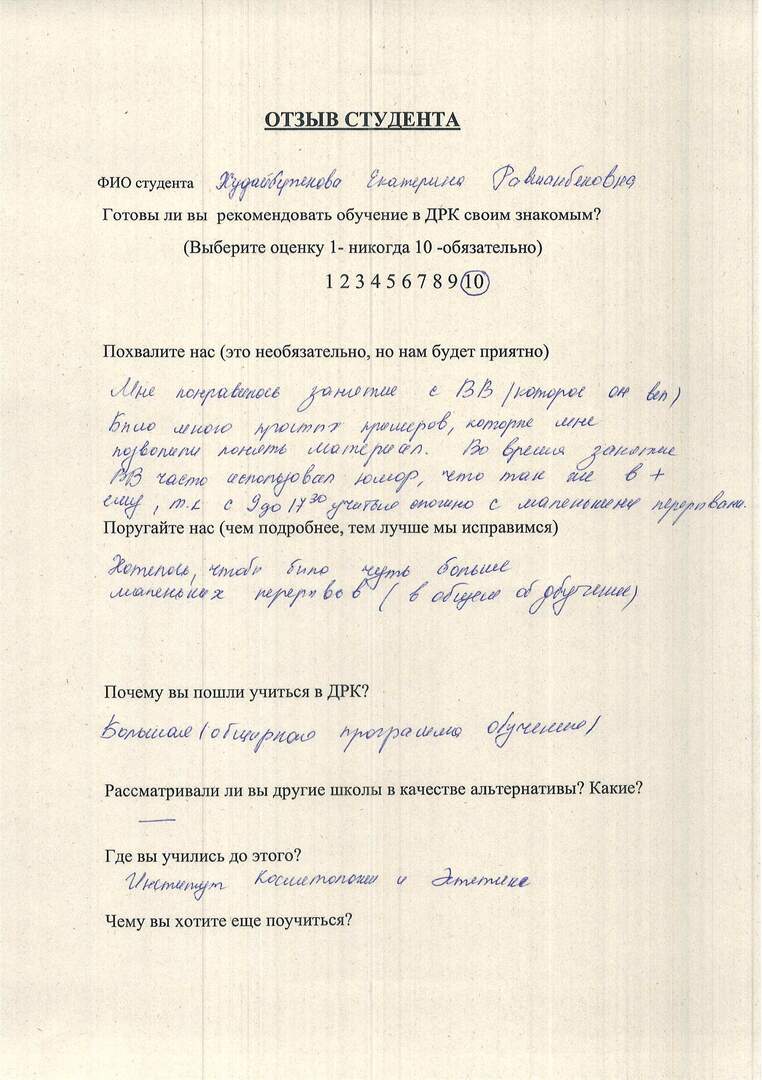 ОТЗЫВ СТУДЕНТА
ФИО студента Екатерина Равшанбековна
Готовы ли вы рекомендовать обучение в ДРК своим знакомым?
(Выберите оценку 1- никогда 10 -обязательно)
1 2 3 4 5 6 7 8 9 10
Похвалите нас (это необязательно, но нам будет приятно)
Мне понравилось занятие с ВВ (которое он вел)
Было много простых примеров, которые мне
позволили понять материал. Во время занятие
ВВ часто использовал юмор, что так же в +
ему, т.к с 9 до 17 30 учиться сложно с маленькими перерывами.
Поругайте нас (чем подробнее, тем лучше мы исправимся)
Хотелось, чтобы было чуть больше
маленьких перерывов (в общем об обучение)
Почему вы пошли учиться в ДРК?
Большая (обширная программа обучения)
Рассматривали ли вы другие школы в качестве альтернативы? Какие?
—
Где вы учились до этого?
Институт Косметологии и Эстетике
Чему вы хотите еще поучиться?